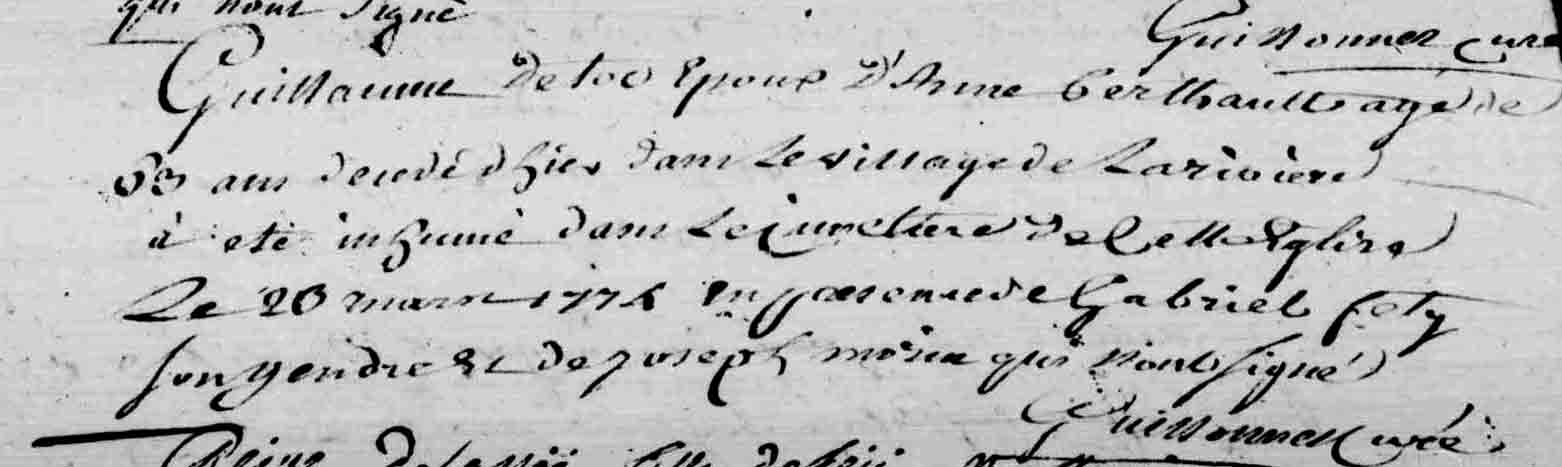 qui n'ont signé
Guissonnier curé
Guillaume époux d'Anne Berthault agé de
63 ans decedé d'hier dans le village de Lariviere
à eté inhumé dans le cimetiere de Cette Eglise
Le 20 mars 1774 en presence de Gabriel fety
son gendre et de joseph qui n'ont signé
curé
Reine fille